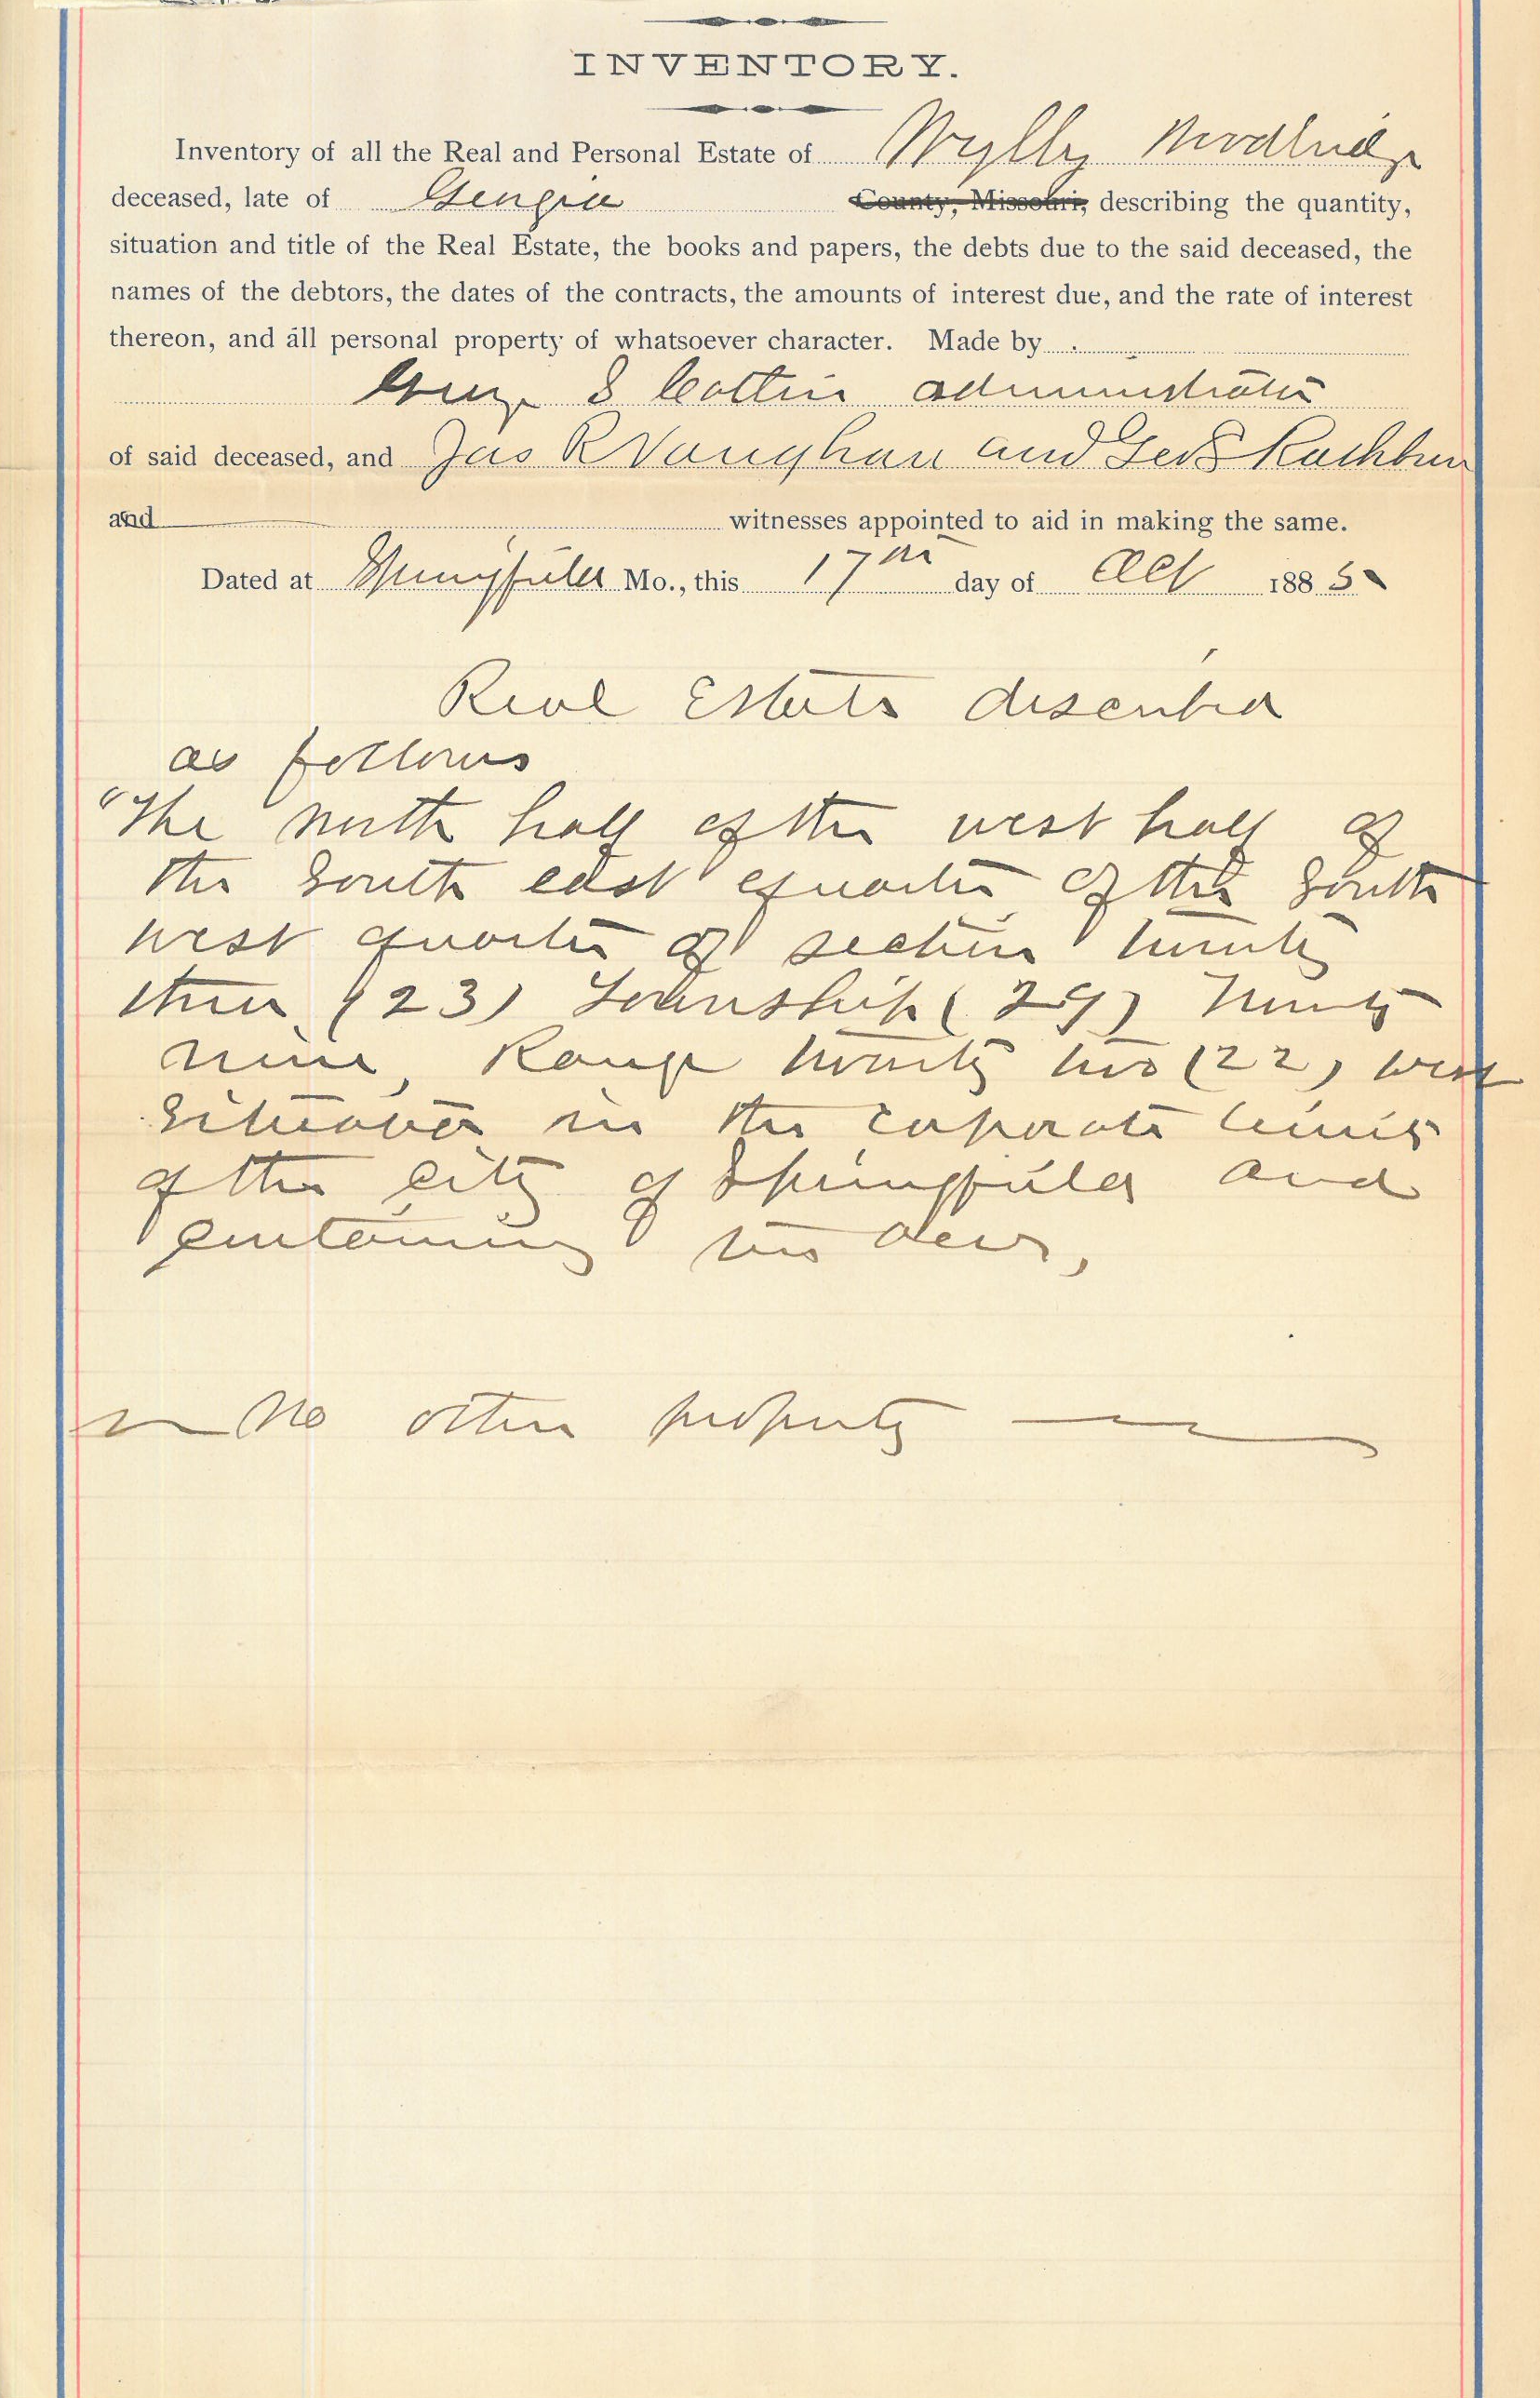 INVENTORY.
Inventory of all the Real and Personal Estate of Wylly Woodbridge
deceased, late of Georgia County, Missouri, describing the quantity,
situation and title of the Real Estate, the books and papers, the debts due to the said deceased, the
names of the debtors, the dates of the contracts, the amounts of interest due, and the rate of interest
thereon, and all personal property of whatsoever character. Made by
George S Cottin administrator
of said deceased, and Jas R Vaughan and Geo S Rathbun
and witnesses appointed to aid in making the same.
Dated at Springfield Mo., this 17th day of Oct 1885
Real Estate described
as follows
"The north half of the west half of
the South east quarter of the South
west quarter of section twenty
three (23) Township (29) Twenty
nine, Range twenty two (22) west
Situated in the corporate limits
of the city of Springfield and
containing ten acres,
No other property